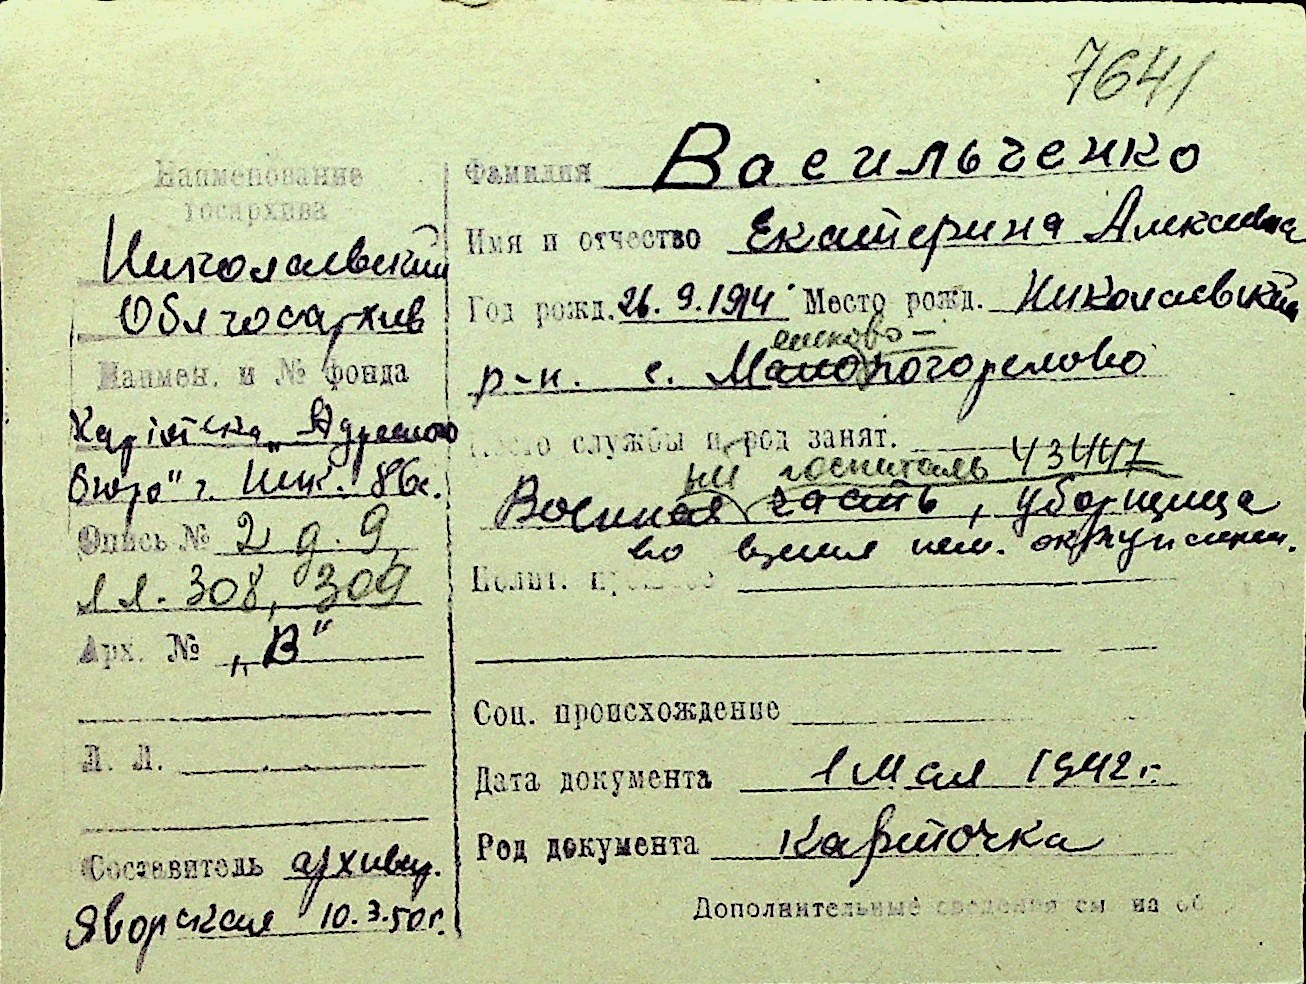 7641
Наименование
госархива
Николаевский
Облгосархив
Наимен. и № фонда
Картотека „Адресного
бюро" г. Ник. 86с.
Опись № 2 д. 9,
л л. 308, 309
Арх. № „В"
Л. Л.
Составитель архивар.
Яворская 10.3.50г.
Фамилия Васильченко
Имя и отчество Екатерина Алексеевна
Год рожд. 26.9.1914 Место рожд. Николаевский
енково-
р-н. с. Малопогорелово
Место службы и род занят.
ый госпиталь 43447
Военная часть, уборщица
во время нем. оккупации.
Полит. прошлое
Соц. происхождение
Дата документа 1 Мая 1942г.
Род документа Карточка
Дополнительные сведения см на об